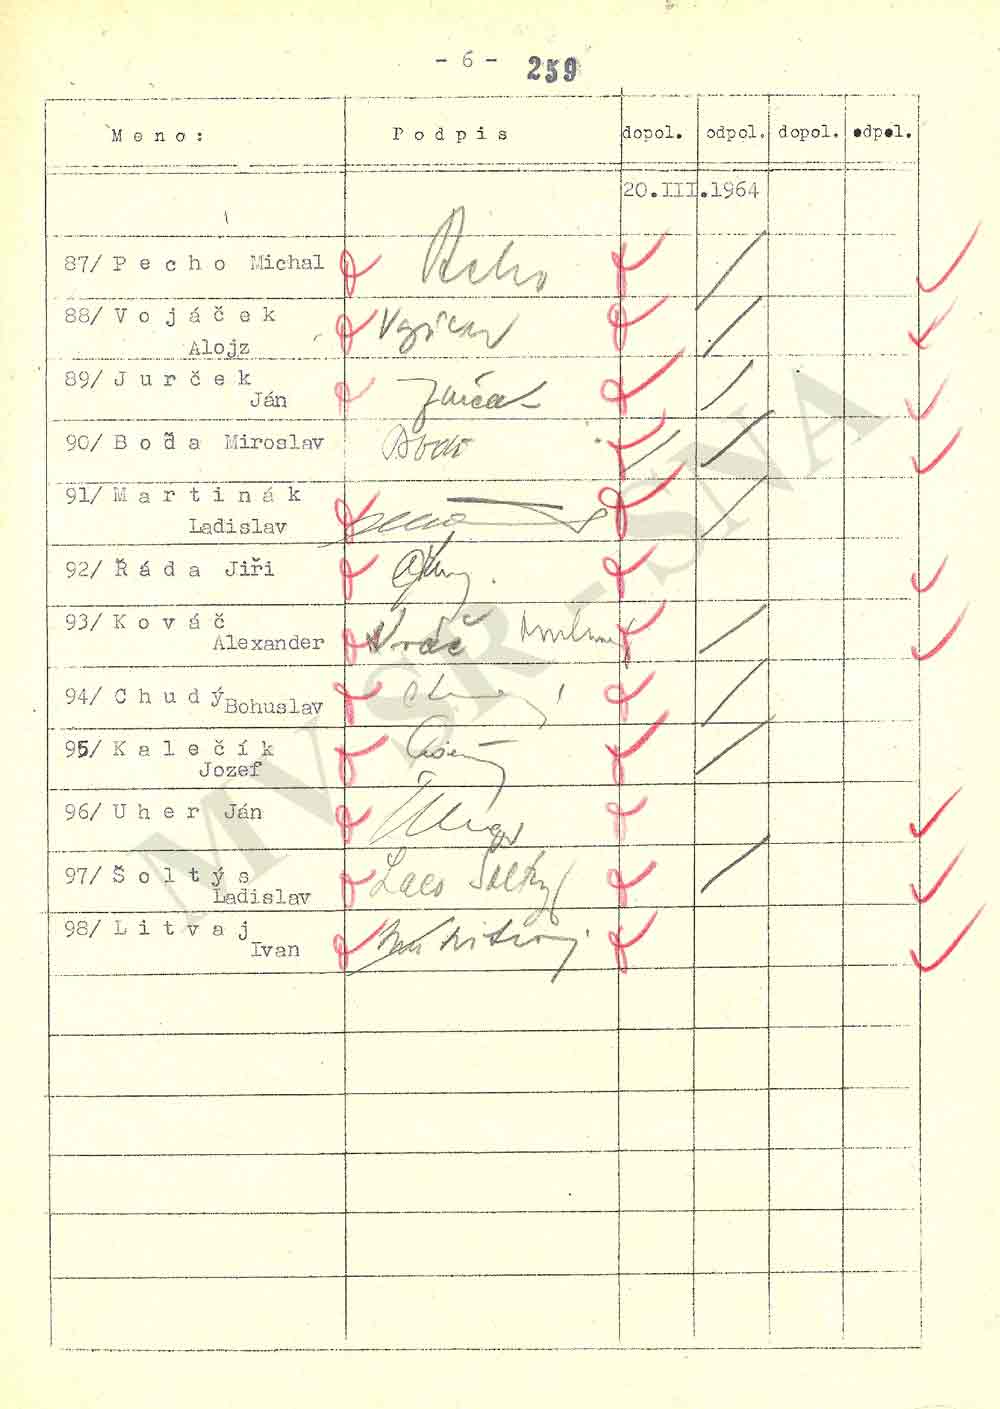 - 6 - 259
Meno: Podpis dopol. odpol. dopol. odpol.
20.III.1964
87/ Pecho Michal
88/ Vojáček
Alojz
89/ Jurček Jurča
Ján
90/ Boďa Miroslav
91/ Martinák
Ladislav
92/ Řáda Jiři
93/ Kováč
Alexander
94/ Chudý Bohuslav
95/ Kalečík
Jozef
96/ Uher Ján
97/ Šoltýs Laco Šoltýs
Ladislav
98/ Litvaj
Ivan
MV SR - SNA